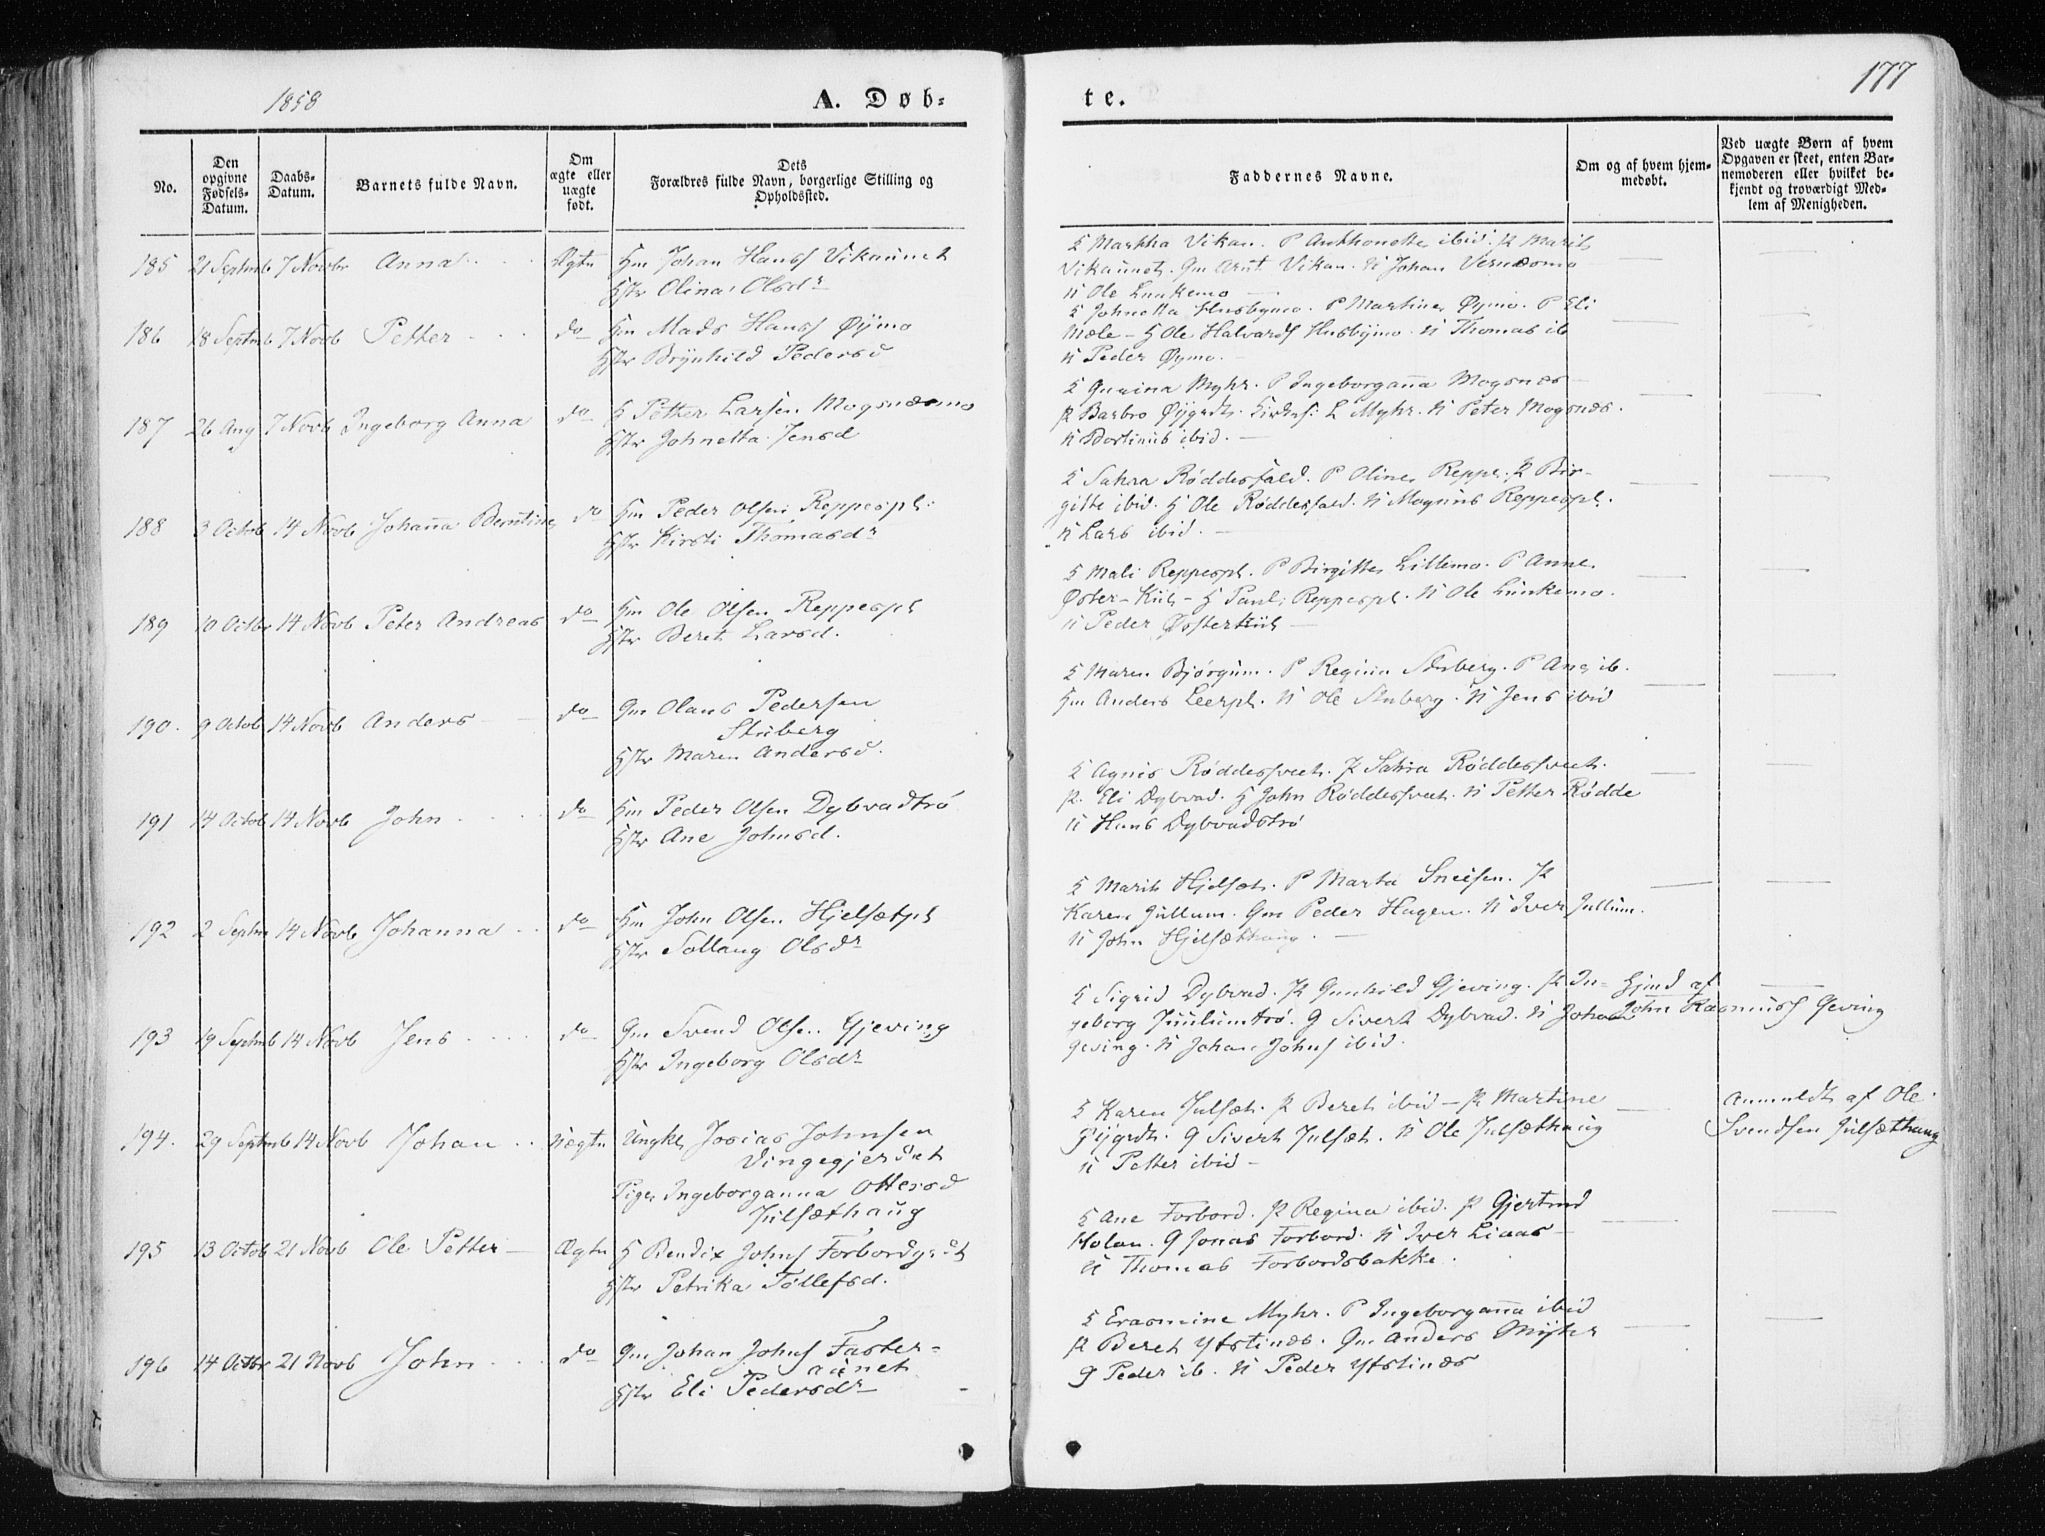 1858
A. Døb-
te.
177
No.
Den opgivne Fødsels-Datum.
Daabs-Datum.
Barnets fulde Navn.
Om ægte eller uægte født.
Dets Forældres fulde Navn, borgerlige Stilling og Opholdssted.
Faddernes Navne.
Om og af hvem hjem-medøbt.
Ved uægte Børn af hvem Opgaven er skeet, enten Bar-nemoderen eller hvilket be-kjendt og troværdigt Med-lem af Menigheden.
185 21 Septmb 7 Novbr Anna Ægte Hm Johan Hansf Vikaunet
Hstr Olina Olsdr
Martha Vikan. P Anthonette ibid. P Marit
Vikaunet. Gm Arnt Vikan. U Johan Vernæsmo
U Ole Lunkemo
186 18 Septmb 7 Novb Petter do Hm Mads Hansf Øymo
Hstr Brynhild Pedersd
Johnetta Husbymo. P Martine Øymo. P Eli
Mæle - H Ole Halvards Husbymo. U Thomas ib
U Peder Øymo.
187 26 Aug 7 Novb Ingeborg Anna do H Petter Larsen Mogsnæsmo
Hstr Johnetta Jensd
Gurina Myhr. P Ingeborganna Mogsnæs
P Barbro Øygrdt. L Myhr. U Peter Mogsnæs.
U Bortinus ibid.
188 3 Octob 14 Novb Johanna Berntine do Hm Peder Olsen Reppespl.
Hstr Kirsti Thomasdr
Sahra Røddesfald. P Oline Reppe. P Bir-
gitte ibid. H Ole Røddesfald. U Magnus Reppespl.
U Lars ibid.
189 10 Octbr 14 Novb Peter Andreas do Hm Ole Olsen Reppespl
Hstr Beret Larsd.
Mali Reppespl. P Birgitte Lillemo. P Anne
Øster-Kiil - H Paul Reppespl. U Ole Lunkemo.
U Peder Østerkiil
190. 9 Octob 14 Novb Anders do Gm Olaus Pedersen
Stuberg
Hstr Maren Andersd.
Maren Bjørgum. P Regina Stuberg. P Ane ib.
Hm Anders Leerpl. U Ole Stuberg. U Jens ibid
191 14 Octob 14 Novb John do Hm Peder Olsen Dybvadtrø
Hstr Ane Johnsd.
Agnis Røddesfveet. P Sahra Røddesfveet.
P. Eli Dybvad. H John Røddesfveet. U Petter Rødde
U Hans Dybvadstrø
192 2 Septm 14 Novb Johanna do Hm John Olsen Hjelsætpl
Hstr Sollaug Olsdr
Marit Hjelset. P Marta Sneisen. P
Karen Jullum. Gm Peder Hagen. U Iver Jullum.
U John Hjelsæthaug.
193 19 Septmb 14 Novb Jens do Gm Svend Olsen Gjeving
Hstr Ingeborg Olsdr
Sigrid Dybvad. P Gunhild Gjeving. P In- Hjmd af
geborg Juulumtrø. G Sivert Dybvad. U Johan John Rasmusf Geving
Geving. U Johan Johnsf ibid.
194. 29 Septmb 14 Novb Johan Uægte Ungkl Josias Johnsen
Vingegjerdet
Pige Ingeborganna Ottersd
Julsæthaug
Karen Julset. P Beret ibid - P Martine Anmeldt af Ole
G Sivert Julset. U Ole Julsæthaug Svendsen Julsæthaug
U Petter ibid -
195 13 Octob 21 Novb Ole Petter Ægte H Bendix Johnsf Forbordgrdt
Hstr Petrika Tollefsd.
Ane Forbord. P Regina ibid. P Gjertrud
Holan. G Jonas Forbord. U Iver Liaas
U Thomas Forbordsbakke.
196 14 Octbr 21 Novb John do Gm Johan Johnsf Faster-
aunet
Hstr Eli Pedersdr
Erasmine Myhr. P Ingeborganna ibid
P Beret Ytstinæs. Gm Anders Myhr
G Peder ib. U Peder Ytstinæs